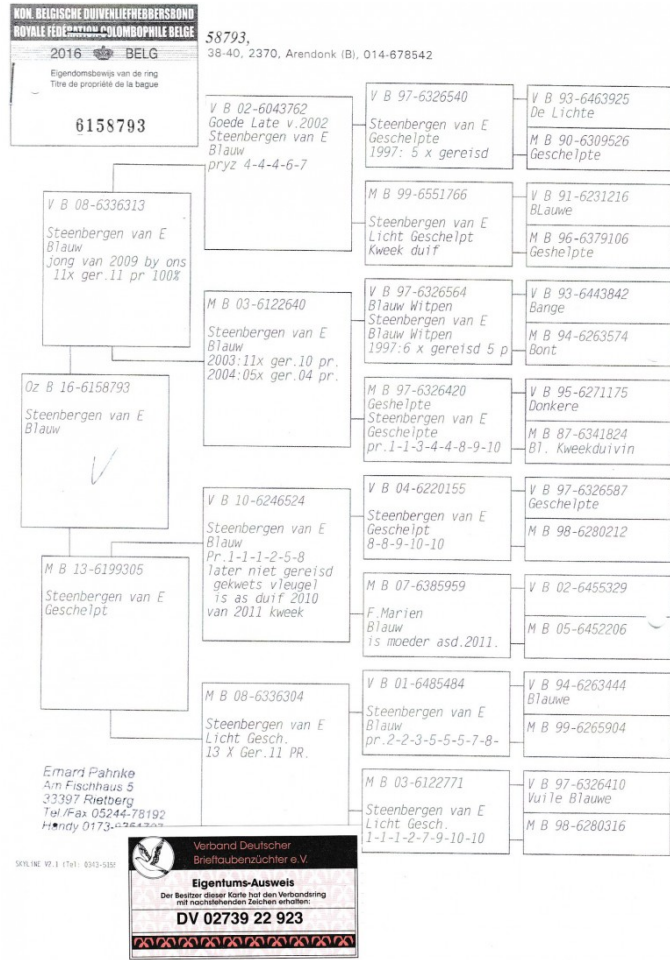 KON. BELGISCHE DUIVENLIEFHEBBERSBOND
ROYALE FÉDÉRATION COLOMBOPHILE BELGE
2016 BELG
Eigendomsbewijs van de ring
Titre de propriété de la bague
6158793
58793,
38-40, 2370, Arendonk (B), 014-678542
Oz B 16-6158793
Steenbergen van E
Blauw
V B 08-6336313
Steenbergen van E
Blauw
jong van 2009 by ons
11x ger.11 pr 100%
M B 13-6199305
Steenbergen van E
Geschelpt
V B 02-6043762
Goede Late v.2002
Steenbergen van E
Blauw
pryz 4-4-4-6-7
M B 03-6122640
Steenbergen van E
Blauw
2003:11x ger.10 pr.
2004:05x ger.04 pr.
V B 10-6246524
Steenbergen van E
Blauw
Pr.1-1-1-2-5-8
later niet gereisd
gekwets vleugel
is as duif 2010
van 2011 kweek
M B 08-6336304
Steenbergen van E
Licht Gesch.
13 X Ger.11 PR.
V B 97-6326540
Steenbergen van E
Geschelpte
1997: 5 x gereisd
M B 99-6551766
Steenbergen van E
Licht Geschelpt
Kweek duif
V B 97-6326564
Blauw Witpen
Steenbergen van E
Blauw Witpen
1997:6 x gereisd 5 p
M B 97-6326420
Geshelpte
Steenbergen van E
Geschelpte
pr.1-1-3-4-4-8-9-10
V B 04-6220155
Steenbergen van E
Geschelpt
8-8-9-10-10
M B 07-6385959
F.Marien
Blauw
is moeder asd.2011.
V B 01-6485484
Steenbergen van E
Blauw
pr.2-2-3-5-5-5-7-8-
M B 03-6122771
Steenbergen van E
Licht Gesch.
1-1-1-2-7-9-10-10
V B 93-6463925
De Lichte
M B 90-6309526
Geschelpte
V B 91-6231216
BLauwe
M B 96-6379106
Geshelpte
V B 93-6443842
Bange
M B 94-6263574
Bont
V B 95-6271175
Donkere
M B 87-6341824
Bl. Kweekduivin
V B 97-6326587
Geschelpte
M B 98-6280212
V B 02-6455329
M B 05-6452206
V B 94-6263444
Blauwe
M B 99-6265904
V B 97-6326410
Vuile Blauwe
M B 98-6280316
Ernard Pahnke
Am Fischhaus 5
33397 Rietberg
Tel./Fax 05244-78192
Handy
Verband Deutscher
Brieftaubenzüchter e.V.
Eigentums-Ausweis
Der Besitzer dieser Karte hat den Verbandsring
mit nachstehenden Zeichen erhalten:
DV 02739 22 923